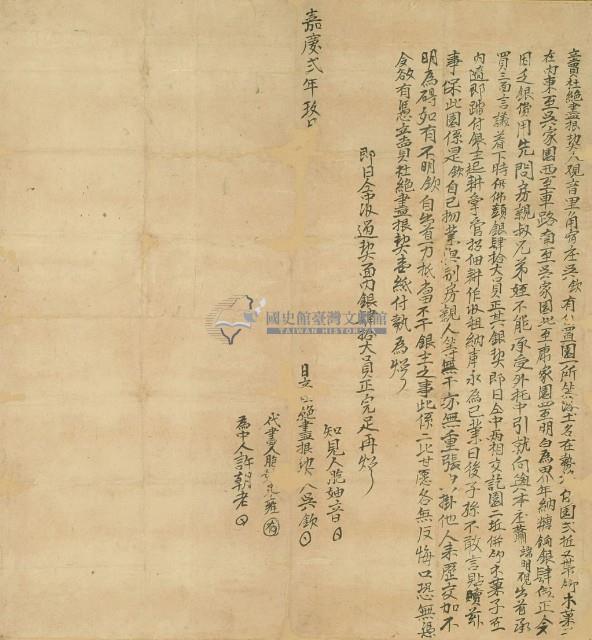 立賣杜絕盡根契人觀音里角宿庄吳欽有置園一所
在內東至吳家園西至車路南至吳家園北至康家園四至明白為界年納糖餉銀肆正今
因乏銀費用先問房親叔兄弟姪不能承受外托中引就向與本庄蕭觀出首承
買三面言議着下時併佛頭銀肆拾大員正其銀契即日仝中兩相交訖園二坵併鄉木菓子至
內適即踏付銀主起耕掌管招佃耕作收租納車永為己業日後子孫不敢言貼贖茲
事保此園係是欽自己物業與別房親人等無干亦無重張掛他人來歷交加不
明為碍如有不明欽自出首一力抵當不干銀主之事此係二比甘愿各無反悔口恐無憑
今欲有憑立賣杜絕盡根契壹紙付執為炤
即日仝中收過契面內銀肆拾大員正完足再炤
嘉慶弍年玖
知見人
日立絕盡根契人吳欽
代書人
為中人許朝老
國史館臺灣文獻館
TAIWAN HISTORICA